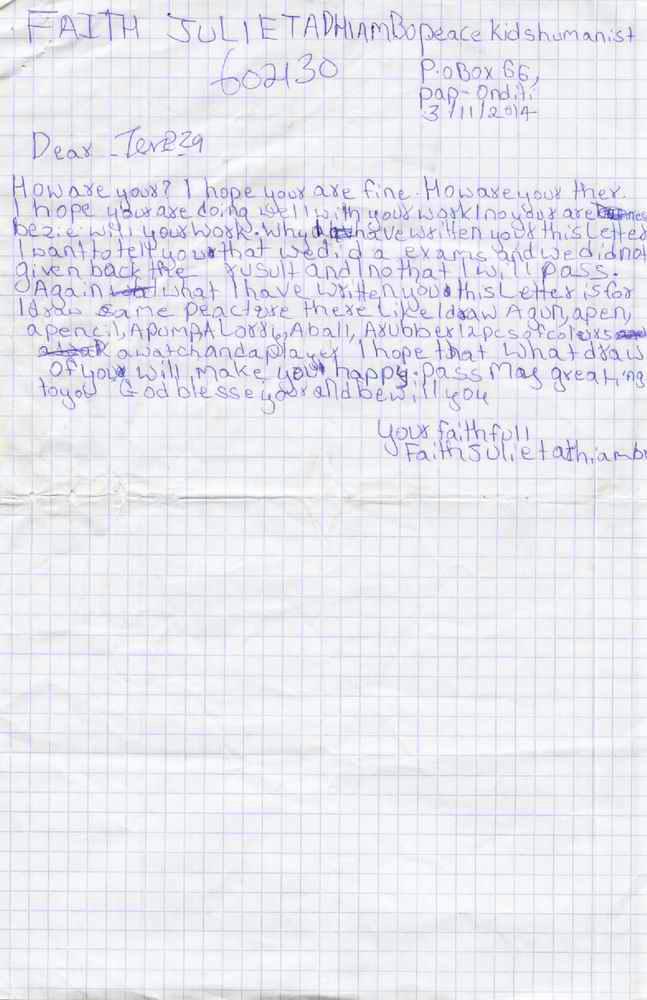 FAITH JULIETADHIAMBO peace kidshumanist
602130
P.O BOX 66,
pap-Onditi
3/11/2014
Dear Tereza
How are your? I hope your are fine. How are your ther.
I hope your are doing well with your work I no your are
bezie will your work. Why I have written your this Letter
I want to tell your that we did a exams and we did not
given back the rusult and I no that I will pass.
Again what I have written your this Letter is for
I draw same peacture there Like I draw A gun, a pen,
a pencil, A pump A Lorry, A ball, A rubber 12 pcs of colours
a watch and a player I hope that what draw
of your will make your happy. pass may greating
to you God blesse your and be will you
Your faithfull
Faith Juliet athiambo